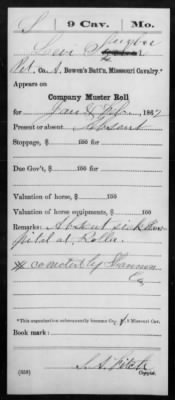 S | 9 Cav. | Mo.
Levi
Pvt., Co. A, Bowen's Batt'n, Missouri Cavalry.*
Appears on
Company Muster Roll
for Jan & Feb, 1862
Present or absent Absent
Stoppage, $ 100 for
Due Gov't, $ 100 for
Valuation of horse, $ 100
Valuation of horse equipments, $ 100
Remarks: Absent sick
pital at Rolla.
Co
*This organization subsequently became Co. , 9 Missouri Cav.
Book mark:
(858) Copyist.